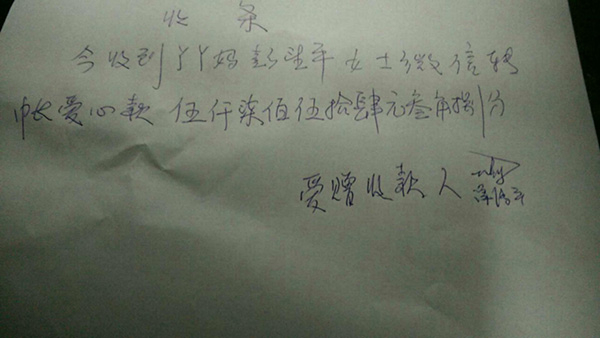 收条
今收到丫丫妈彭建平女士微信转
帐爱心款 伍仟柒佰伍拾肆元叁角捌分
受赠收款人